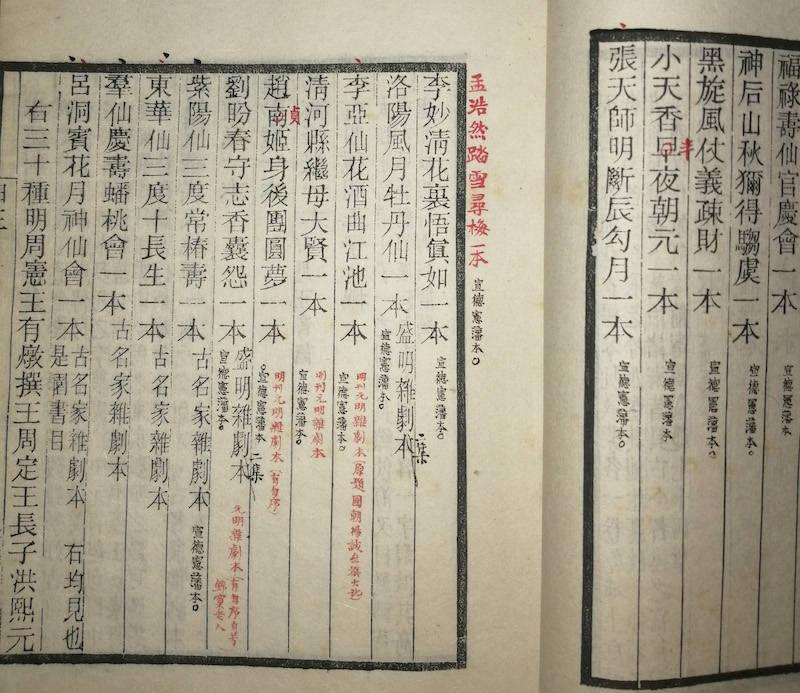 福祿壽仙官慶會一本 宣德憲藩本。
神后山秋獮得騶虞一本 宣德憲藩本。
黑旋風仗義疎財一本 宣德憲藩本。
小天香早夜朝元一本 宣德憲藩本
半
張天師明斷辰勾月一本 宣德憲藩本。
孟浩然踏雪尋梅一本 宣德憲藩本。
李妙清花裏悟眞如一本 宣德憲藩本。
洛陽風月牡丹仙一本 盛明雜劇本 二集
宣德憲藩本。
李亞仙花酒曲江池一本 明刊元明雜劇本(原題國朝楊誠齋撰大訛)
宣德憲藩本。
清河縣繼母大賢一本 明刊元明雜劇本
宣德憲藩本。
貞
趙南姬身後團圓夢一本 明刊元明雜劇本(有自序)
。宣德憲藩本
劉盼春守志香囊怨一本 盛明雜劇本 二集 元明雜劇本(有自序自署
錦窠老人
宣德憲藩本。
紫陽仙三度常椿壽一本 古名家雜劇本 宣德憲藩本。
東華仙三度十長生一本 古名家雜劇本
羣仙慶壽蟠桃會一本 古名家雜劇本
呂洞賓花月神仙會一本 古名家雜劇本 右均見也
是園書目
右三十種明周憲王有燉撰王周定王長子洪熙元